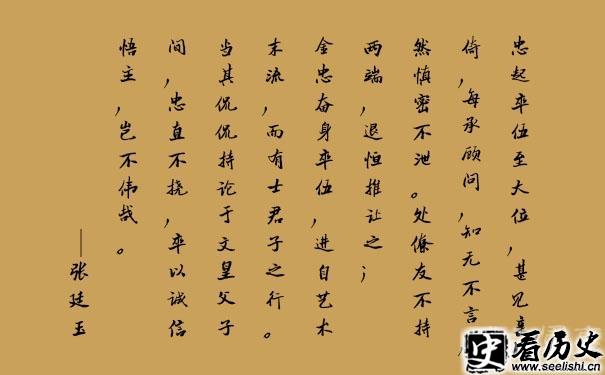 忠起卒伍至大位，甚见亲
倚，每承顾问，知无不言，
然慎密不泄。处僚友不持
两端，退恒推让之；
金忠奋身卒伍，进自艺术
末流，而有士君子之行。
当其侃侃持论于文皇父子
间，忠直不挠，卒以诚信
悟主，岂不伟哉。
——张廷玉
史 看历史
www.seelishi.cn